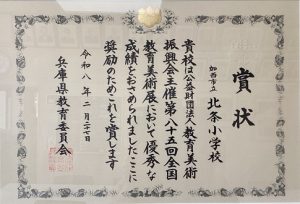 賞状
加西市立 北条小学校
貴校は公益財団法人教育美術
振興会主催第八十五回全国
教育美術展において優秀な
成績をおさめられましたここに
奨励のためこれを賞します
令和八年二月二十七日
兵庫県教育委員会